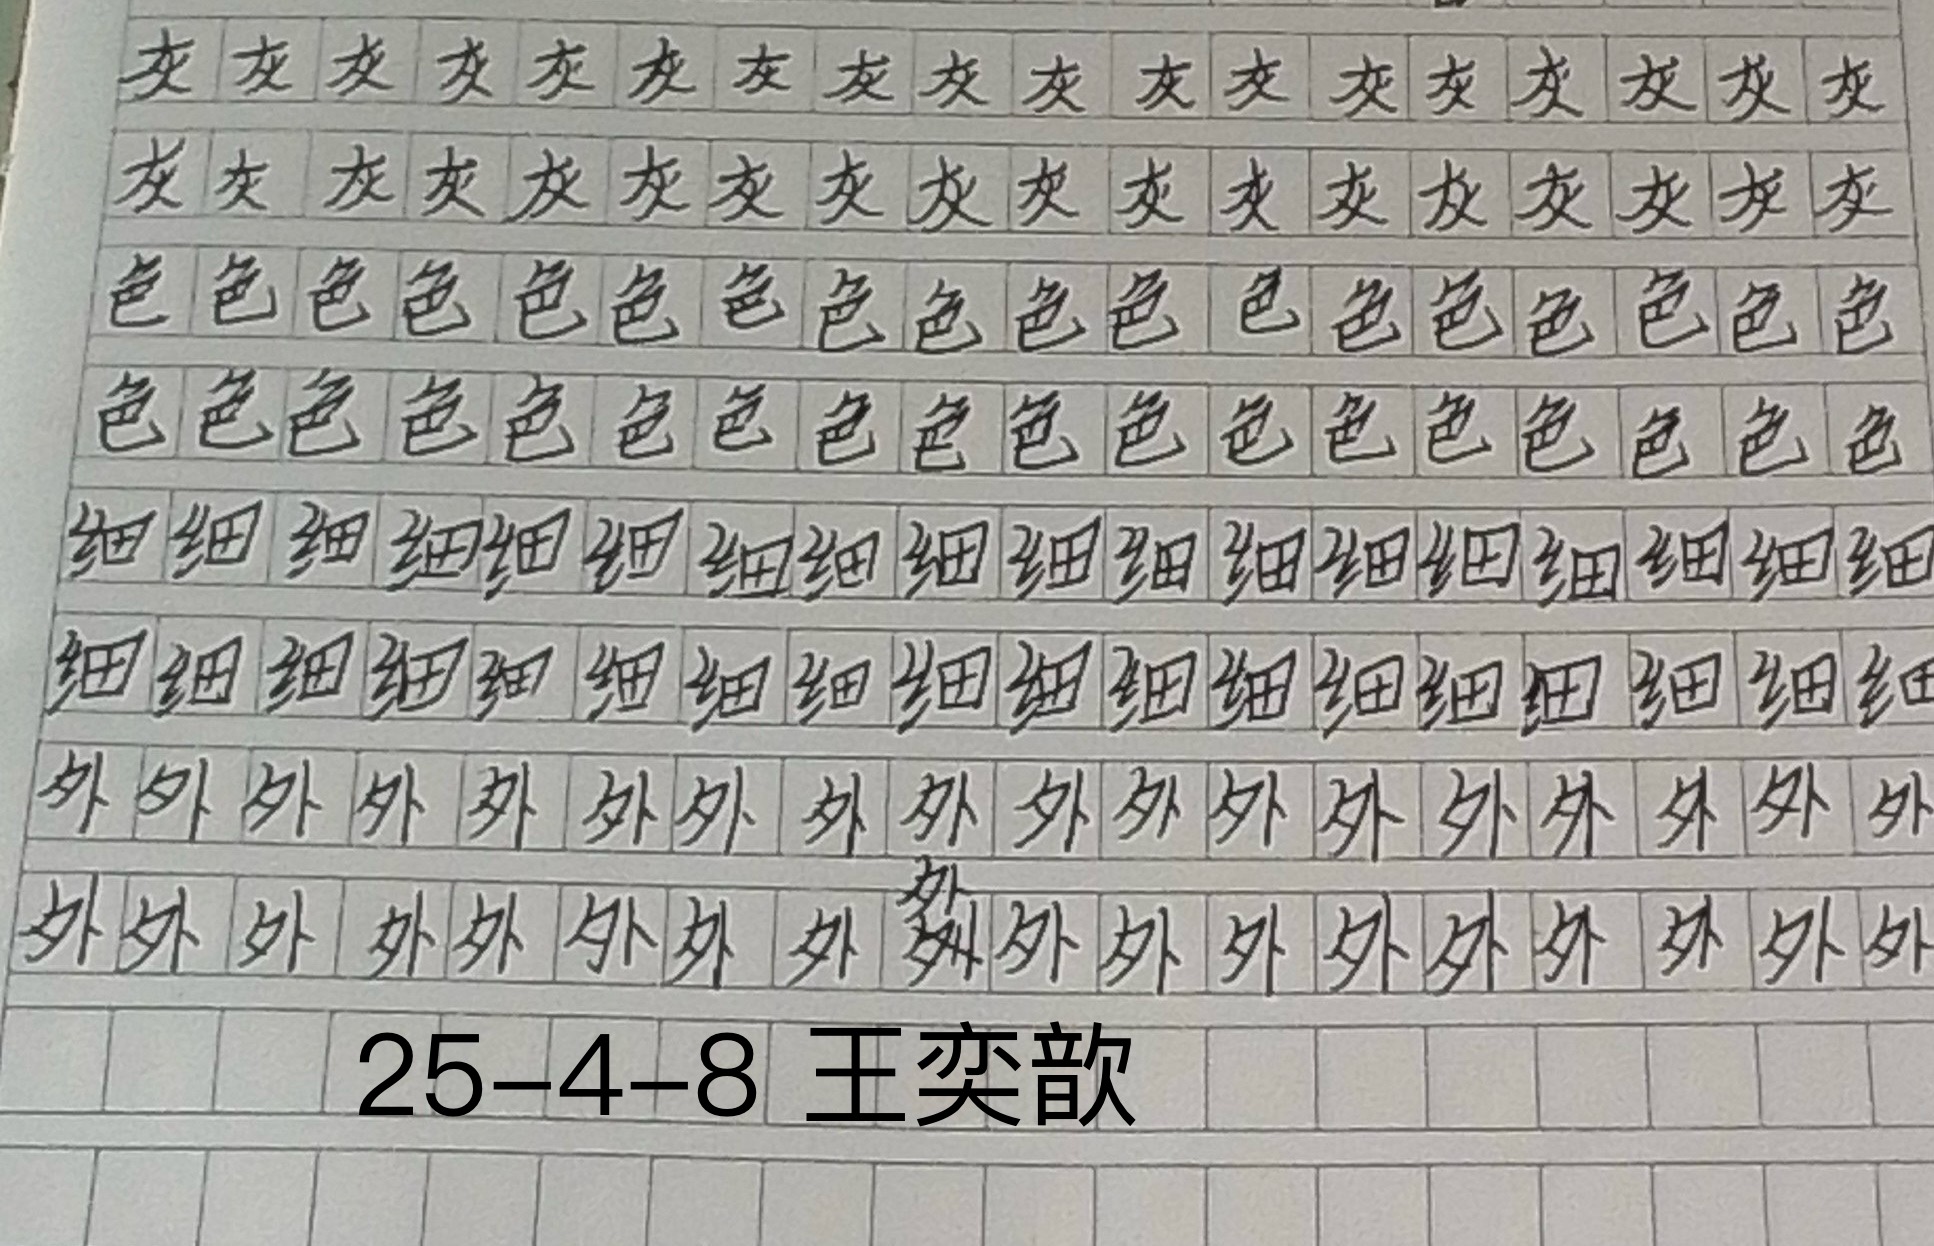 灰灰灰灰灰灰灰灰灰灰灰灰灰灰灰灰灰灰
灰灰灰灰灰灰灰灰灰灰灰灰灰灰灰灰灰灰
色色色色色色色色色色色色色色色色色色
色色色色色色色色色色色色色色色色色色
细细细细细细细细细细细细细细细细细细
细细细细细细细细细细细细细细细细细细
外外外外外外外外外外外外外外外外外外
外
外外外外外外外外外外外外外外外外外
25-4-8 王奕歆